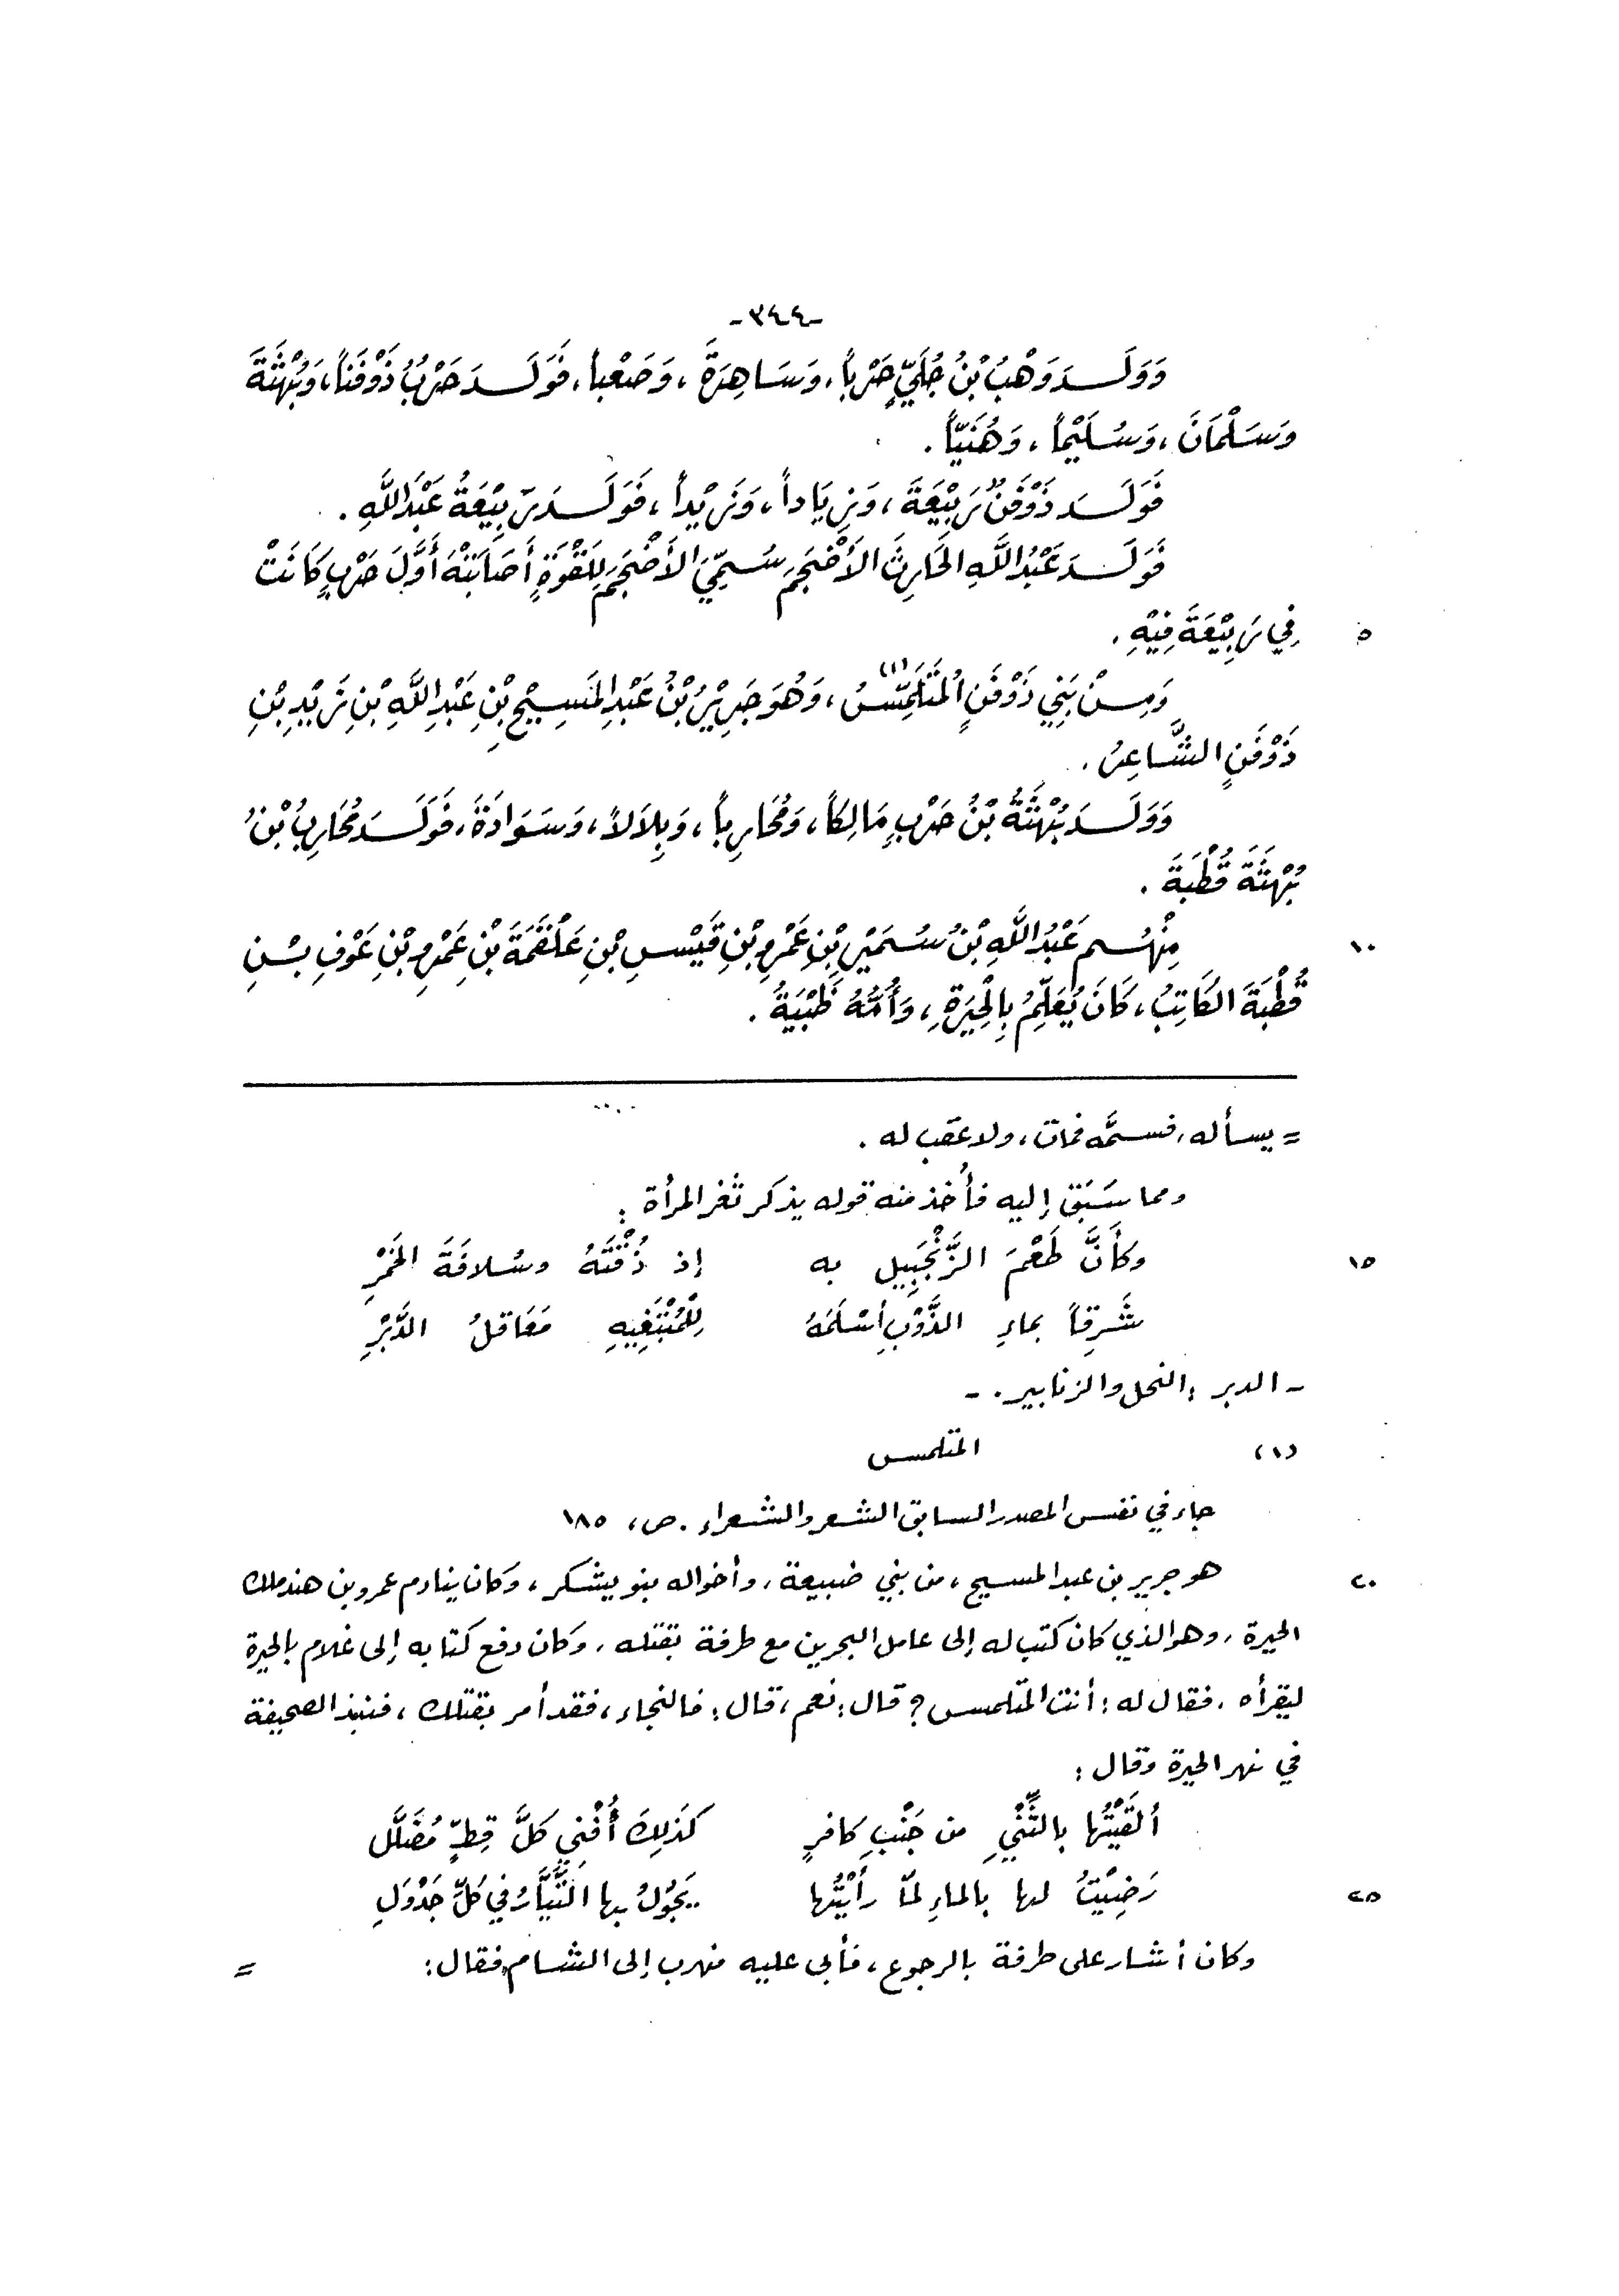 -٣٤٤-
وَوَلَـــدَ وَهْبُ بْنُ جُلَيٍّ حَرْباً، وَسَاهِرَةَ، وَصَعْباً، فَوَلَـــدَ حَرْبُ ذَوْفَناً، وَبُهْثَةَ
وَسَلْمَانَ، وَسُلَيْماً، وَهُنَيّاً.
فَوَلَـــدَ ذَوْفَنٌ رَبِيْعَةَ، وَزِيَاداً، وَزَيْداً، فَوَلَـــدَ رَبِيْعَةُ عَبْدَ اللَّهِ.
فَوَلَـــدَ عَبْدُ اللَّهِ الحَارِثَ الأَضْجَمَ سُمِّيَ الأَضْجَمَ لِلَقْوَةٍ أَصَابَتْهُ أَوَّلَ حَرْبٍ كَانَتْ
٥ فِي رَبِيْعَةَ فِيْهِ.
وَمِـــنْ بَنِي ذَوْفَنٍ المُتَلَمِّسُ(١)، وَهُوَ جَرِيْرُ بْنُ عَبْدِ المَسِيْحِ بْنِ عَبْدِ اللَّهِ بْنِ زَيْدِ بْنِ
ذَوْفَنٍ الشَّاعِرُ.
وَوَلَـــدَ بُهْثَةُ بْنُ حَرْبٍ مَالِكاً، وَمُحَارِباً، وَبِلاَلاً، وَسَوَادَةَ، فَوَلَـــدَ مُحَارِبُ بْنُ
بُهْثَةَ قُطْبَةَ.
١٠ مِنْهُـــم عَبْدُ اللَّهِ بْنُ سُمَيْرِ بْنِ عَمْرِو بْنِ قَيْسِ بْنِ عَلْقَمَةَ بْنِ عَمْرِو بْنِ عَوْفِ بْـــنِ
قُطْبَةَ الكَاتِبُ، كَانَ يُعَلِّمُ بِالحِيْرَةِ، وَأُمُّهُ ظَبْيَةُ.
= يسأله، فسمَّه فمات، ولا عقب له.
ومما سَبَقَ إليه فأُخذ منه قوله يذكر ثغر المرأة:
١٥ وكأَنَّ طَعْمَ الزَّنْجَبِيل به إذ ذُقْتَهُ وسُلافَةَ الخَمْرِ
شَرِقاً بماءِ الذَّوْبِ أَسْلَمَهُ لِلْمُبْتَغِيهِ مَعَاقلُ الدَّبْرِ
- الدبر: النحل والزنابير. -
(١) المتلمس
جاء في نفس المصدر السابق الشعر والشعراء. ص، ١٨٥
٢٠ هو جرير بن عبد المسيح، من بني ضبيعة، وأخواله بنو يشكر، وكان ينادم عمرو بن هند ملك
الحيرة، وهو الذي كان كتب له إلى عامل البحرين مع طرفة بقتله، وكان دفع كتابه إلى غلام بالحيرة
ليقرأه، فقال له: أنت المتلمس؟ قال: نعم، قال: فالنجاء، فقد أمر بقتلك، فنبذ الصحيفة
في نهر الحيرة وقال:
أَلقَيْتُها بالثِّنْيِ من جَنْبِ كافرٍ كذَلِكَ أُفْنِي كلَّ قِطٍّ مُضَلَّل
٢٥ رَضِيْتُ لها بالماءِ لمّا رأَيْتُها يَجُوْلُ بها التَّيَّارُ في كلِّ جَدْوَلِ
وكان أشار على طرفة بالرجوع، فأبى عليه فهرب إلى الشام فقال: =